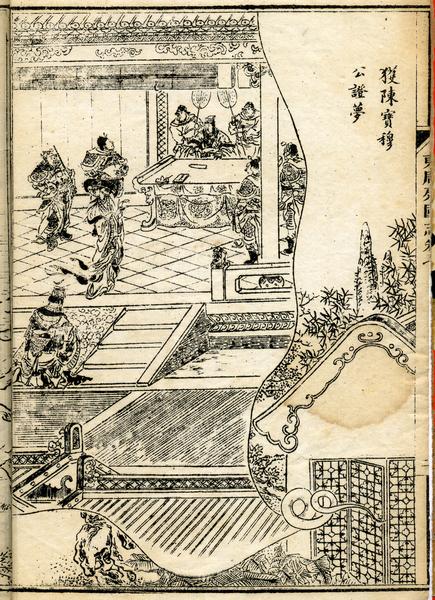 獲陳寶穆
公證夢
東周列國志